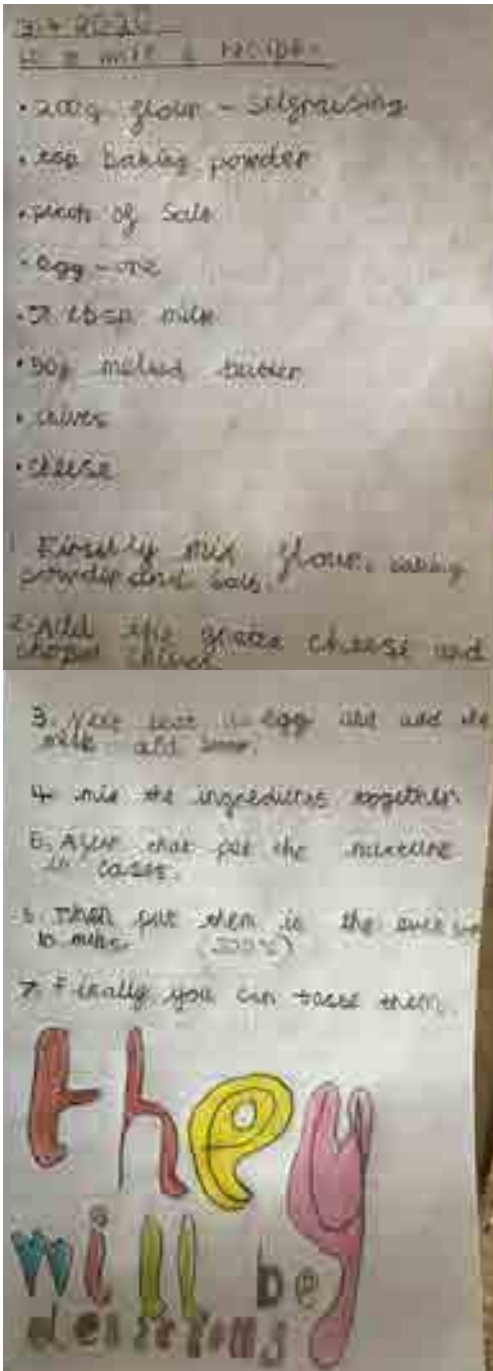 recipe
• 200g flour - selfraising
• tsp baking powder
• pinch of salt
• egg - one
tbsp milk
• 50g melted butter
• chives
• cheese
1. Firstly mix flour, baking
powder and salt.
2. Add the grated cheese and
chives
3. egg and add the
milk and
4. mix the ingredients together
5. After that put the mixture
in cases.
Then put them in the oven
10 mins.
7. Finally you can taste them.
they
will be
delicious